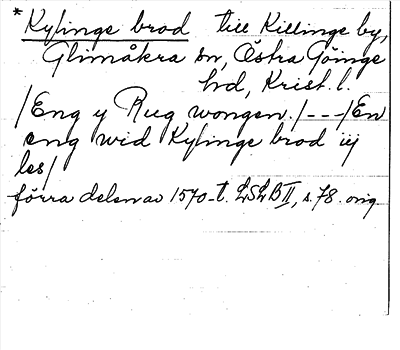 * Kylinge brod till Killinge by,
Glimåkra sn, Östra Göinge
hd, Krist. l.
/Eng y Rug wongen./---/En
eng wid Kylinge brod iij
les/
förra delen av 1570-t. LSLB II, s. 78. orig.